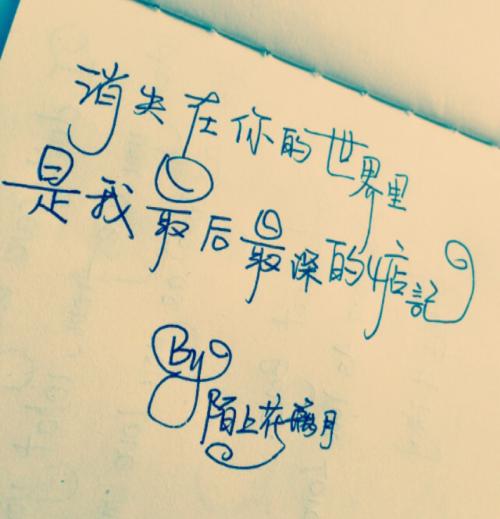 消失在你的世界里
是我最后最深的惦記
By
陌上花漓月